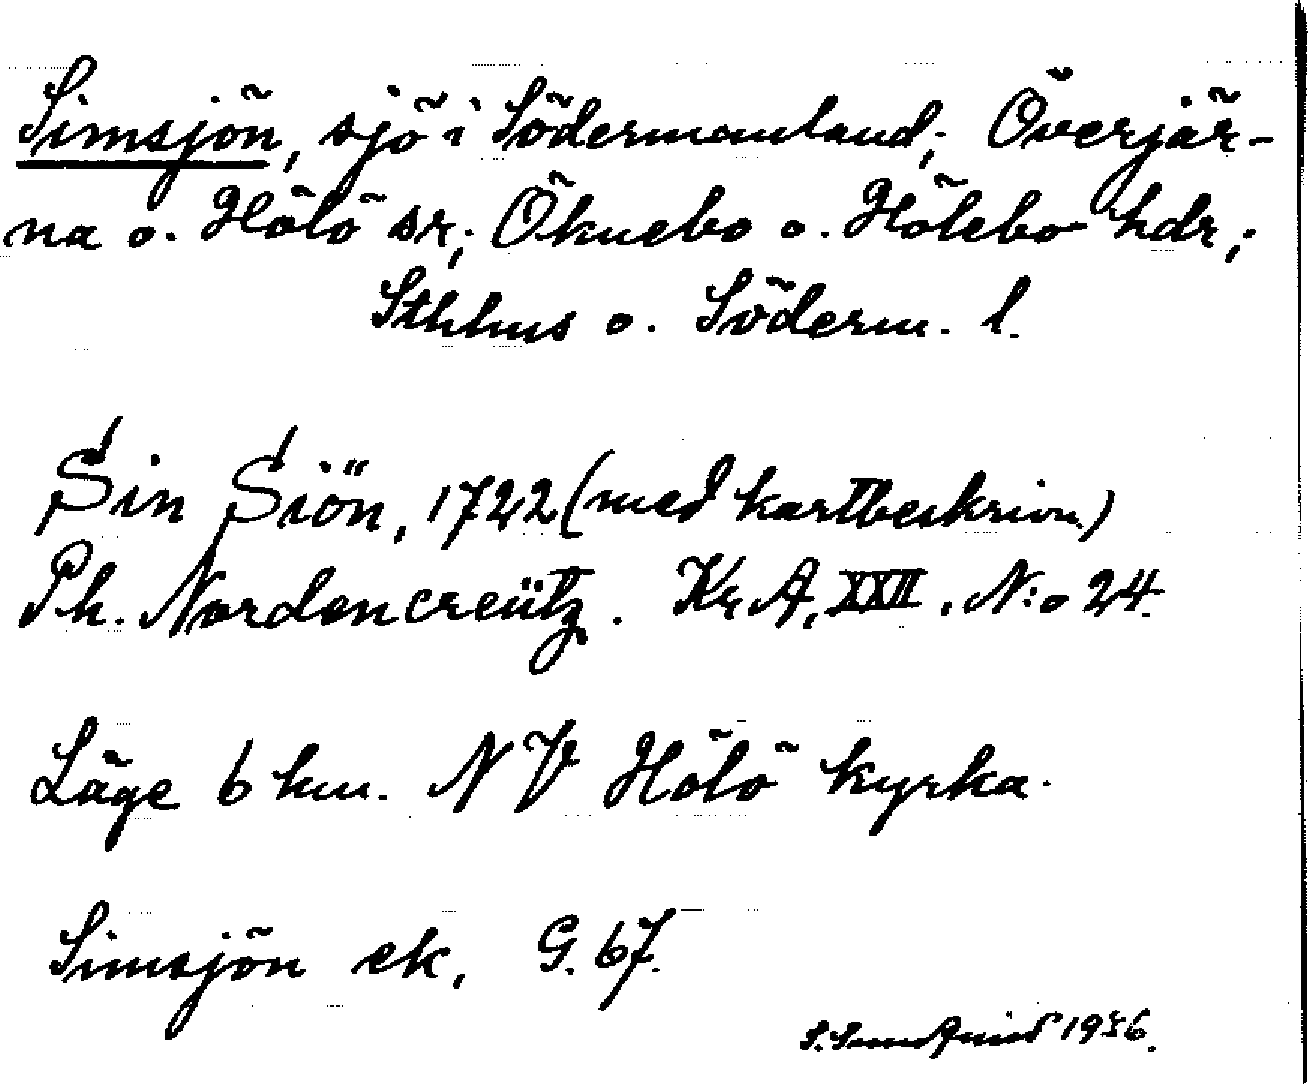 Simsjön, sjö i Södermanland; Överjär-
na o. Hölö sr; Öknebo o. Hölebo hdr;
Sthlms o. Söderm. l.
Sin Siön, 1722 (med kartbeskrivn.)
Ph. Nordencreütz. Kr. A, XXII, N:o 24.
Läge 6 km. NV Hölö kyrka.
Simsjön ek, G. 67.
S. Sundquist 1936.